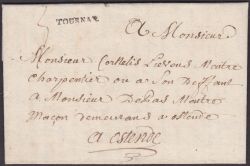 TOURNAY
A Monsieur
Monsieur Cornelis Liessens Meutre
Charpentier ou a son Deffaut
a Monsieur Debias Meutre
Maçon demeurans a ostende
a ostende